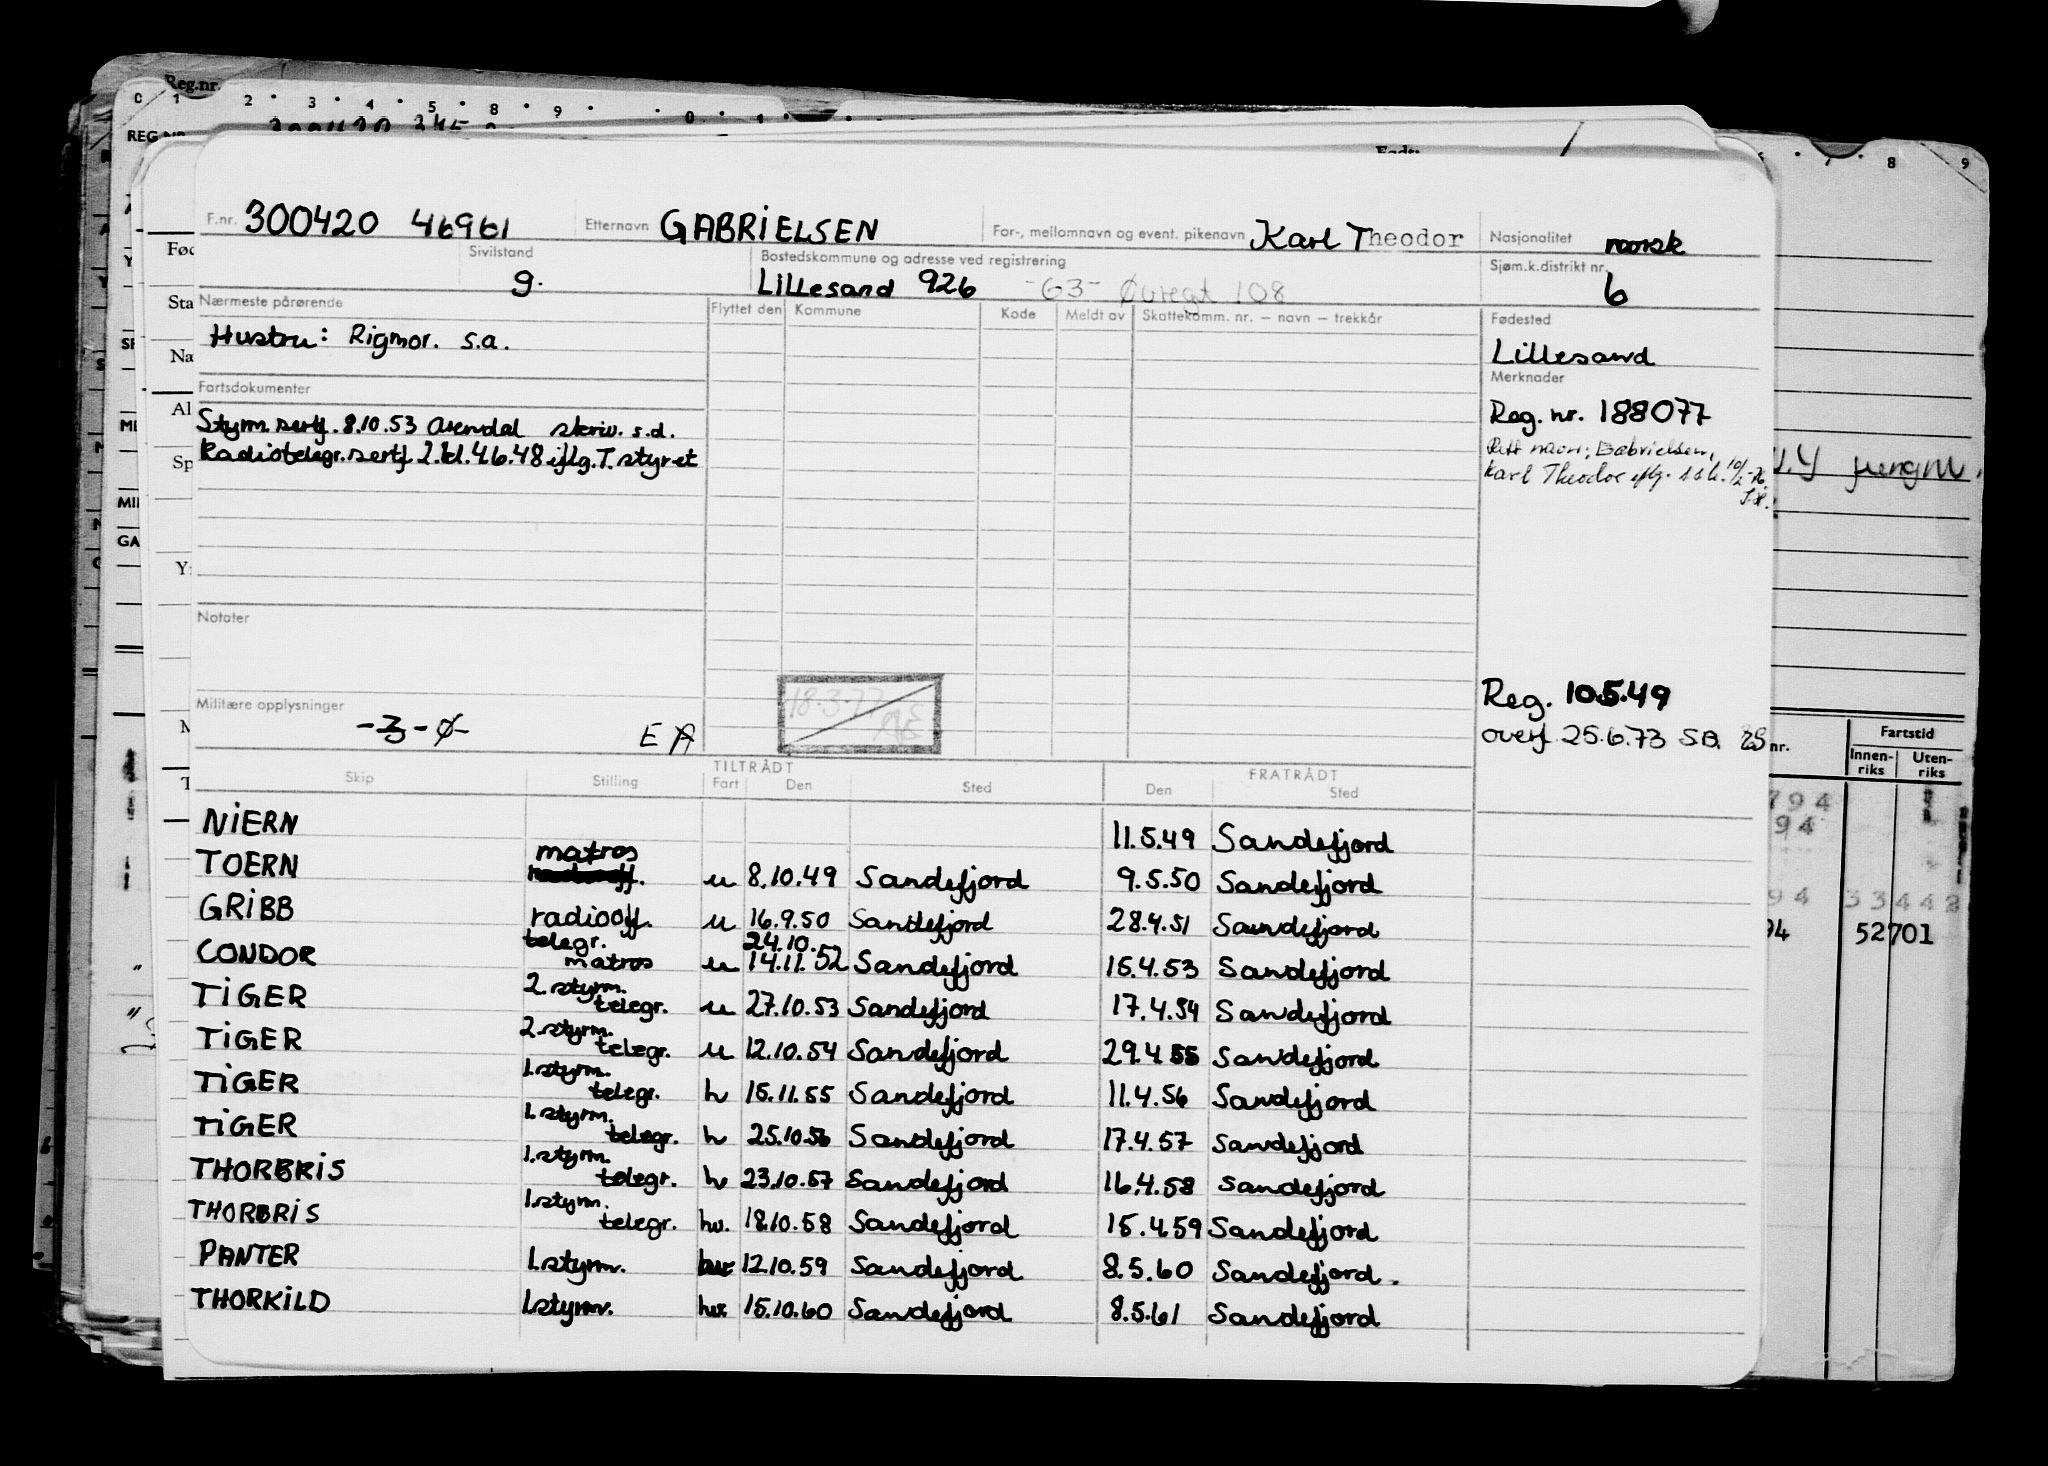 Reg.nr.
0 1 2 3 4 5 8 9 0 1
REG.NR.
Født:
8 9
F.nr. 300420 46961 Etternavn GABRIELSEN For-, mellomnavn og event. pikenavn Karl Theodor Nasjonalitet norsk
Sivilstand g. Bostedskommune og adresse ved registrering Lillesand 926 -63- Øvregt 108 Sjøm.k.distrikt nr. 6
Nærmeste pårørende Flyttet den Kommune Kode Meldt av Skattekomm. nr. – navn – trekkår Fødested
Hustru: Rigmor. s.a. Lillesand
Fartsdokumenter Merknader
Styrm.sertf. 8.10.53 Arendal skriv. s.d. Reg. nr. 188077
Radiotelegr.sertf 2.kl.4.6.48 iflg.T.styret Rett navn: Gabrielsen,
Karl Theodor iflg. s s k. 10/2-76.
Notater
Militære opplysninger -3-Ø- E A
18.3.77
Reg. 10.5.49
overf 25.6.73 S.B.
nr. Fartstid
Innen-riks Uten-riks
794
94
94 33442
94 52701
Skip Stilling TILTRÅDT Fart Den Sted FRATRÅDT Den Sted
NIERN 11.5.49 Sandefjord
TOERN matros u 8.10.49 Sandefjord 9.5.50 Sandefjord
GRIBB radiooff. u 16.9.50 Sandefjord 28.4.51 Sandefjord
CONDOR telegr. matros u 24.10. 14.11.52 Sandefjord 15.4.53 Sandefjord
TIGER 2.styrm. telegr. u 27.10.53 Sandefjord 17.4.54 Sandefjord
TIGER 2.styrm. telegr. u 12.10.54 Sandefjord 29.4.55 Sandefjord
TIGER 1.styrm. telegr. h 15.11.55 Sandefjord 11.4.56 Sandefjord
TIGER 1.styrm. telegr. h 25.10.56 Sandefjord 17.4.57 Sandefjord
THORBRIS 1.styrm. telegr. h 23.10.57 Sandefjord 16.4.58 Sandefjord
THORBRIS 1.styrm. telegr. hv. 18.10.58 Sandefjord 15.4.59 Sandefjord
PANTER 1.styrm. 12.10.59 Sandefjord 8.5.60 Sandefjord.
THORKILD 1.styrm. 15.10.60 Sandefjord 8.5.61 Sandefjord